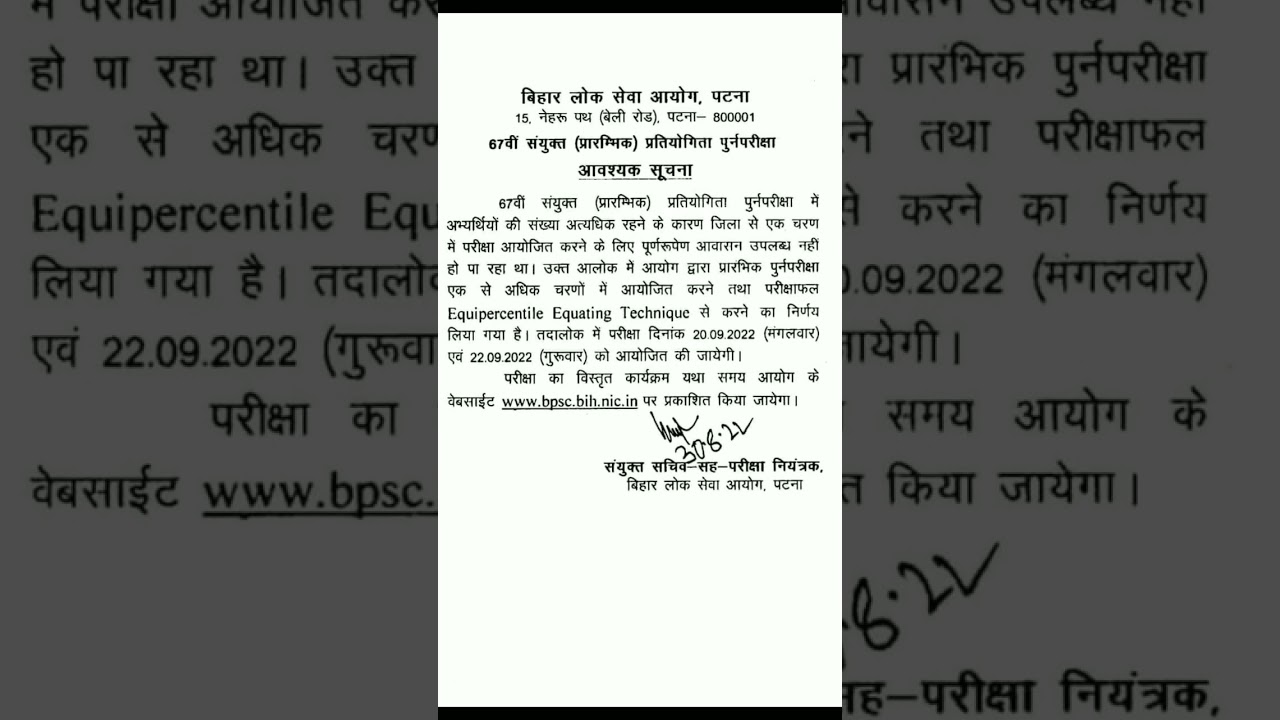 बिहार लोक सेवा आयोग, पटना
15, नेहरू पथ (बेली रोड), पटना– 800001
67वीं संयुक्त (प्रारम्भिक) प्रतियोगिता पुर्नपरीक्षा
आवश्यक सूचना
67वीं संयुक्त (प्रारम्भिक) प्रतियोगिता पुर्नपरीक्षा में
अभ्यर्थियों की संख्या अत्यधिक रहने के कारण जिला से एक चरण
में परीक्षा आयोजित करने के लिए पूर्णरूपेण आवासन उपलब्ध नहीं
हो पा रहा था। उक्त आलोक में आयोग द्वारा प्रारंभिक पुर्नपरीक्षा
एक से अधिक चरणों में आयोजित करने तथा परीक्षाफल
Equipercentile Equating Technique से करने का निर्णय
लिया गया है। तदालोक में परीक्षा दिनांक 20.09.2022 (मंगलवार)
एवं 22.09.2022 (गुरूवार) को आयोजित की जायेगी।
परीक्षा का विस्तृत कार्यक्रम यथा समय आयोग के
वेबसाईट www.bpsc.bih.nic.in पर प्रकाशित किया जायेगा।
30.8.22
संयुक्त सचिव–सह–परीक्षा नियंत्रक,
बिहार लोक सेवा आयोग, पटना